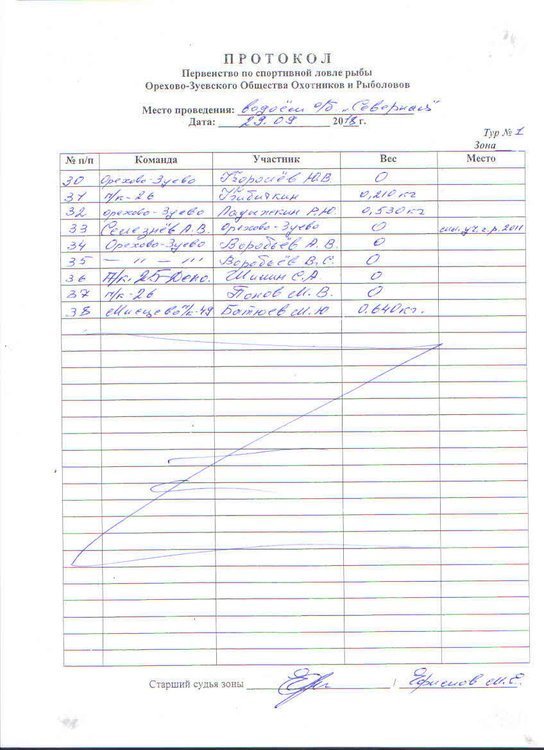 ПРОТОКОЛ
Первенство по спортивной ловле рыбы
Орехово-Зуевского Общества Охотников и Рыболовов
Место проведения: водоём о/б "Северная"
Дата: 29.09 2013г.
Тур № 1
Зона
№ п/п Команда Участник Вес Место
30 Орехово-Зуево Ю.В. 0
31 п/к-26 0,210 кг
32 Орехово-Зуево Р.Ю. 0,530 кг
33 Селезнёв А.В. Орехово-Зуево 0
34 Орехово-Зуево Воробьёв А.В. 0
35 — " — " Воробьёв В.С. 0
36 п/к-25-Депо. Шишин С.А 0
37 п/к-26 Попов М.В. 0
38 п/к-49 Батюев М.Ю 0.640кг.
Старший судья зоны / М.Е.